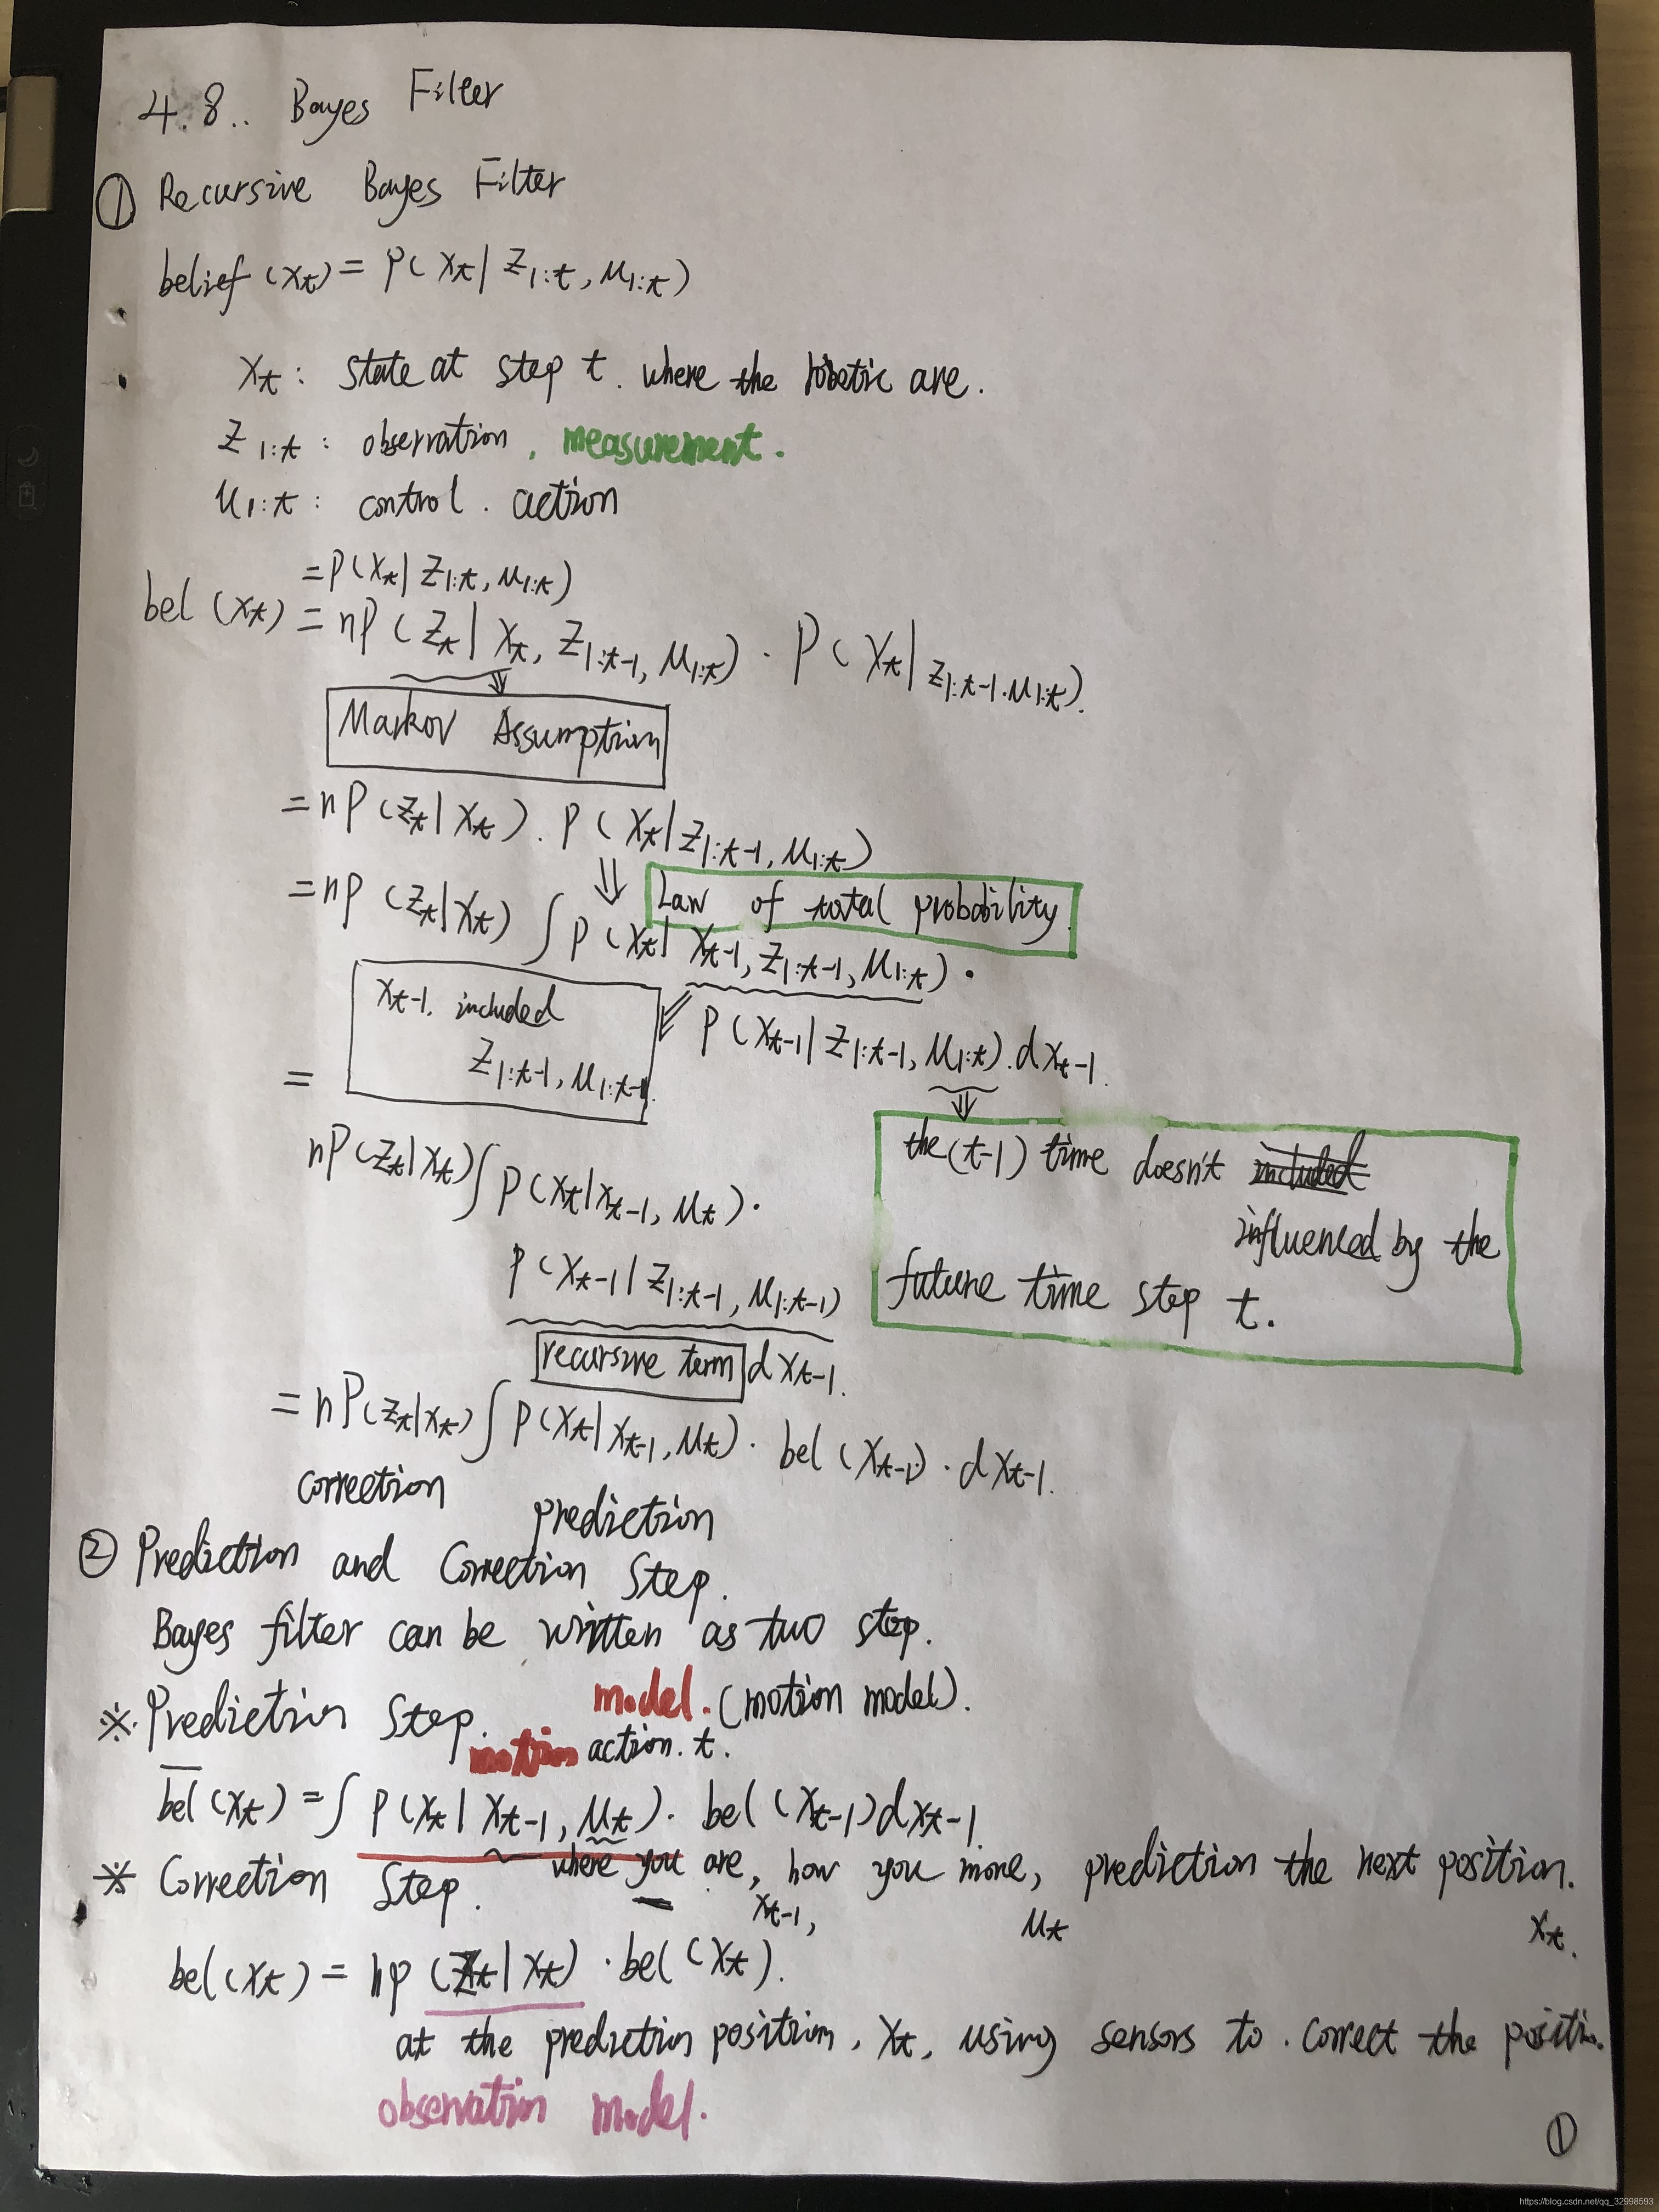 4.8.. Bayes Filter
① Recursive Bayes Filter
belief (xₜ) = P( xₜ | z₁:ₜ, u₁:ₜ)
xₜ : state at step t. where the robotic are.
z₁:ₜ : observation, measurement.
u₁:ₜ : control. action
= P(xₜ | z₁:ₜ, u₁:ₜ)
bel (xₜ) = ηP ( zₜ | xₜ, z₁:ₜ₋₁, u₁:ₜ) · P ( xₜ | z₁:ₜ₋₁. u₁:ₜ).
⇓
Markov Assumption
= ηP (zₜ | xₜ). P ( xₜ | z₁:ₜ₋₁, u₁:ₜ)
⇓ Law of total probability.
= ηP (zₜ | xₜ) ∫ P (xₜ | xₜ₋₁, z₁:ₜ₋₁, u₁:ₜ) ·
xₜ₋₁. included
z₁:ₜ₋₁, u₁:ₜ₋₁.
P (xₜ₋₁ | z₁:ₜ₋₁, u₁:ₜ). dxₜ₋₁.
=
⇓
the (t-1) time doesn't included
influenced by the
future time step t.
ηP (zₜ | xₜ) ∫ P (xₜ | xₜ₋₁, uₜ) ·
P (xₜ₋₁ | z₁:ₜ₋₁, u₁:ₜ₋₁)
recursive term dxₜ₋₁.
= ηP(zₜ | xₜ) ∫ P (xₜ | xₜ₋₁, uₜ) · bel (xₜ₋₁) · dxₜ₋₁.
correction prediction
② Prediction and Correction Step.
Bayes filter can be written as two step.
※ Prediction Step. model. (motion model).
motion action. t.
b̅e̅l̅ (xₜ) = ∫ P (xₜ | xₜ₋₁, uₜ) · bel (xₜ₋₁) dxₜ₋₁.
where you are, how you move, prediction the next position.
※ Correction Step.
xₜ₋₁, uₜ xₜ.
bel (xₜ) = ηp (zₜ | xₜ) · bel (xₜ).
at the prediction position, xₜ, using sensors to. correct the position.
observation model.
①
https://blog.csdn.net/qq_32998593